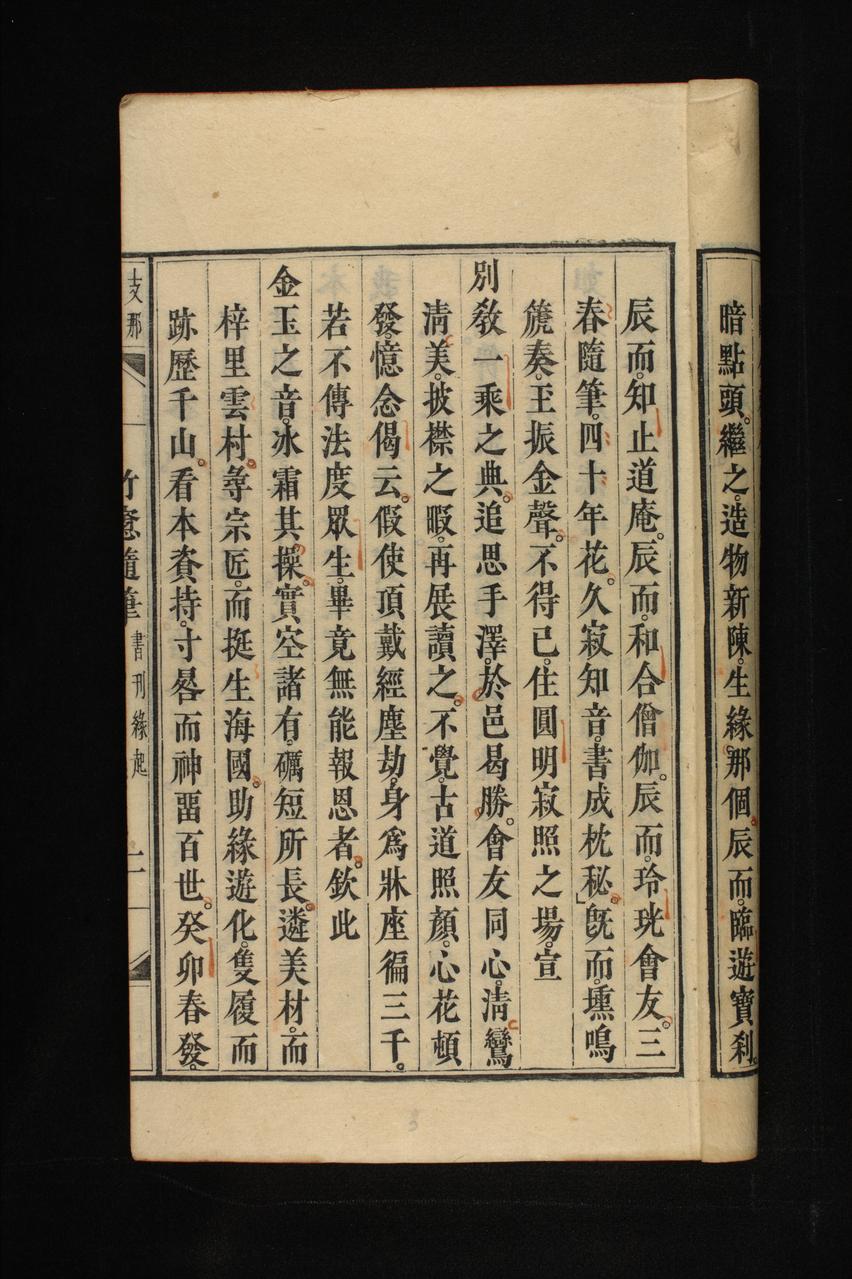 暗點頭。繼之。造物新陳。生緣。那個。辰而。臨遊寶刹。
辰而。知止道庵。辰而。和合僧伽。辰而。玲珖會友。三
春隨筆。四十年花。久寂知音。書成枕秘。旣而。壎鳴
箎奏。玉振金聲。不得已。住圓明寂照之場。宣
別敎一乘之典。追思手澤。於邑曷勝。會友同心。淸鸞
淸美。披襟之暇。再展讀之。不覺。古道照顏。心花頓
發。憶念偈云。假使頂戴經塵劫。身爲牀座徧三千。
若不傳法度眾生。畢竟無能報恩者。欽此
金玉之音。冰霜其操。實空諸有。礪短所長。遴美材。而
梓里雲村。尋宗匠。而挺生海國。助緣遊化。隻履而
跡歷千山。看本資持。寸晷而神畱百世。癸卯春發。
支那
竹窻隨筆 書刊緣起
二